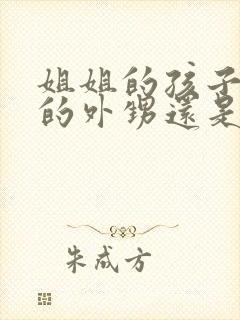 姐姐的孩子
的外甥還是
朱成方